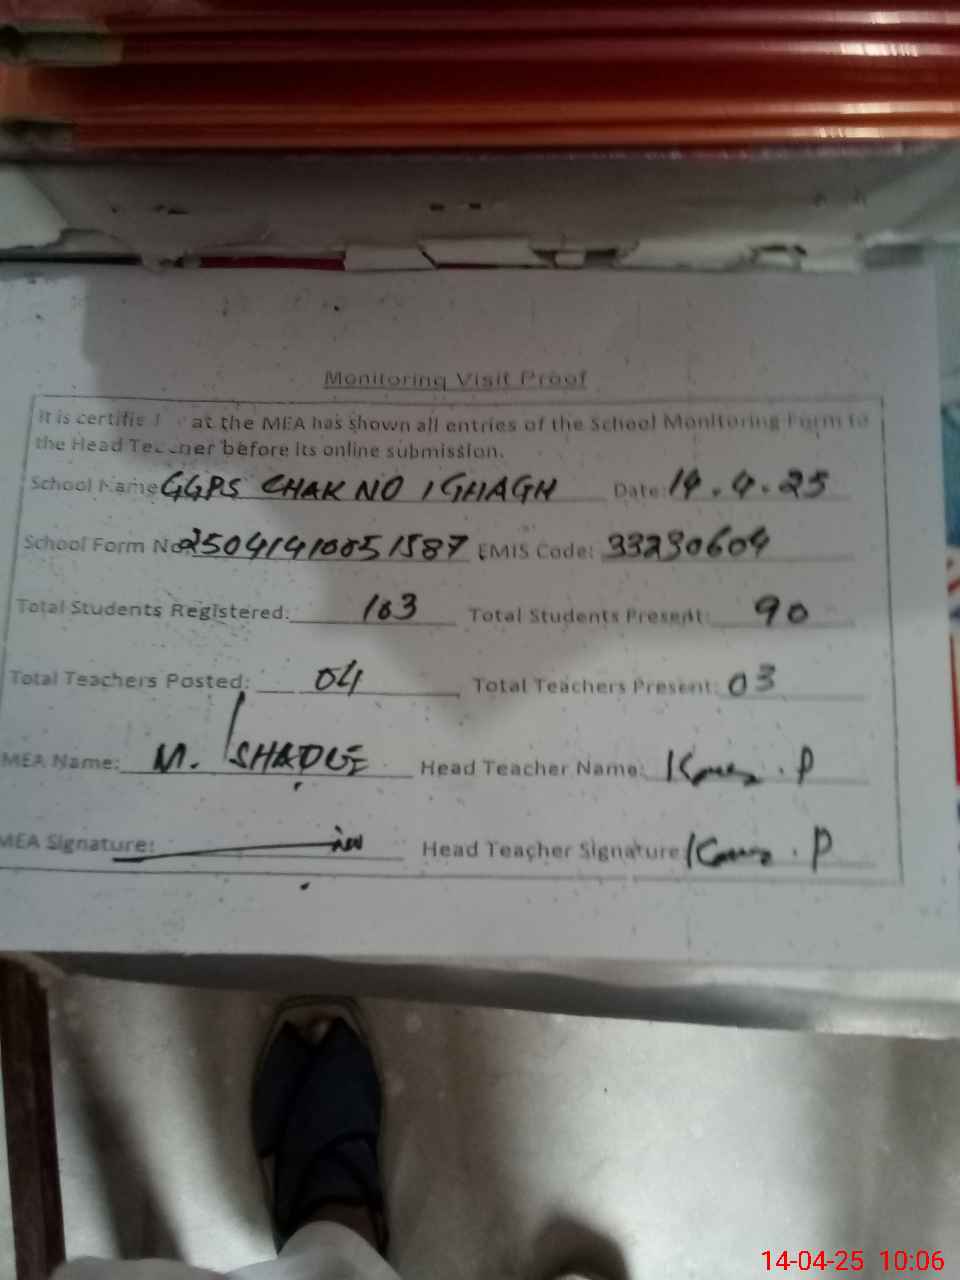 Monitoring Visit Proof
It is certifie at the MEA has shown all entries of the School Monitoring Form to
the Head Teacher before its online submission.
School Name GGPS CHAK NO 1 GHAGH Date: 14.4.25
School Form No 25041410051587 EMIS Code: 33230604
Total Students Registered: 103 Total Students Present: 90
Total Teachers Posted: 04 Total Teachers Present: 03
MEA Name: M. Head Teacher Name: P
MEA Signature: Head Teacher Signature: P
14-04-25 10:06